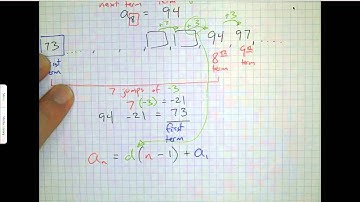 next term
a₈ = 94
+3 +3 +3
73 , . . . . , □, □, 94, 97, . . .
first term
8th term
9th term
7 jumps of -3
7(-3) = -21
94 -21 = 73
first term
aₙ = d(n - 1) + a₁